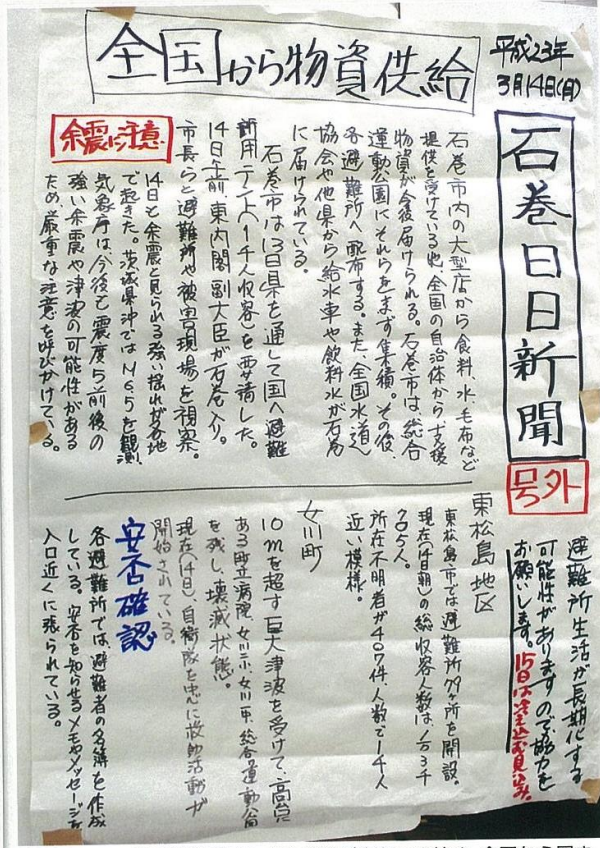 全国から物資供給
平成23年
3月14日(月)
石巻日日新聞
号外
避難所生活が長期化する
可能性がありますので協力を
お願いします。15日は冷え込む見込み。
石巻市内の大型店から食料、水、毛布など
提供を受けている他、全国の自治体から支援
物資が今後届けられる。石巻市は、総合
運動公園にそれらをまず集積。その後、
各避難所へ配布する。また、全国水道
協会や他県から給水車や飲料水が石巻
に届けられている。
石巻市は13日県を通して国へ避難
所用テント(1千人収容)を要請した。
14日午前、東内閣副大臣が石巻入り。
市長らと避難所や被害現場を視察。
余震に注意
14日も余震と見られる強い揺れが各地
で起きた。茨城県沖ではM6.5を観測、
気象庁は今後も震度5前後の
強い余震や津波の可能性がある
ため、厳重な注意を呼びかけている。
東松島地区
東松島市では避難所79ヶ所を開設。
現在(14日朝)の総収容人数は1万3千
705人。
所在不明者が407件人数で1千人
近い模様。
女川町
10mを超す巨大津波を受けて、高台に
ある町立病院、女川二小、女川一中、総合運動公
を残し、壊滅状態。
現在(14日)、自衛隊を中心に救助活動が
開始されている。
安否確認
各避難所では、避難者の名簿を作成
している。安否を知らせるメモやメッセージを
入口近くに張られている。